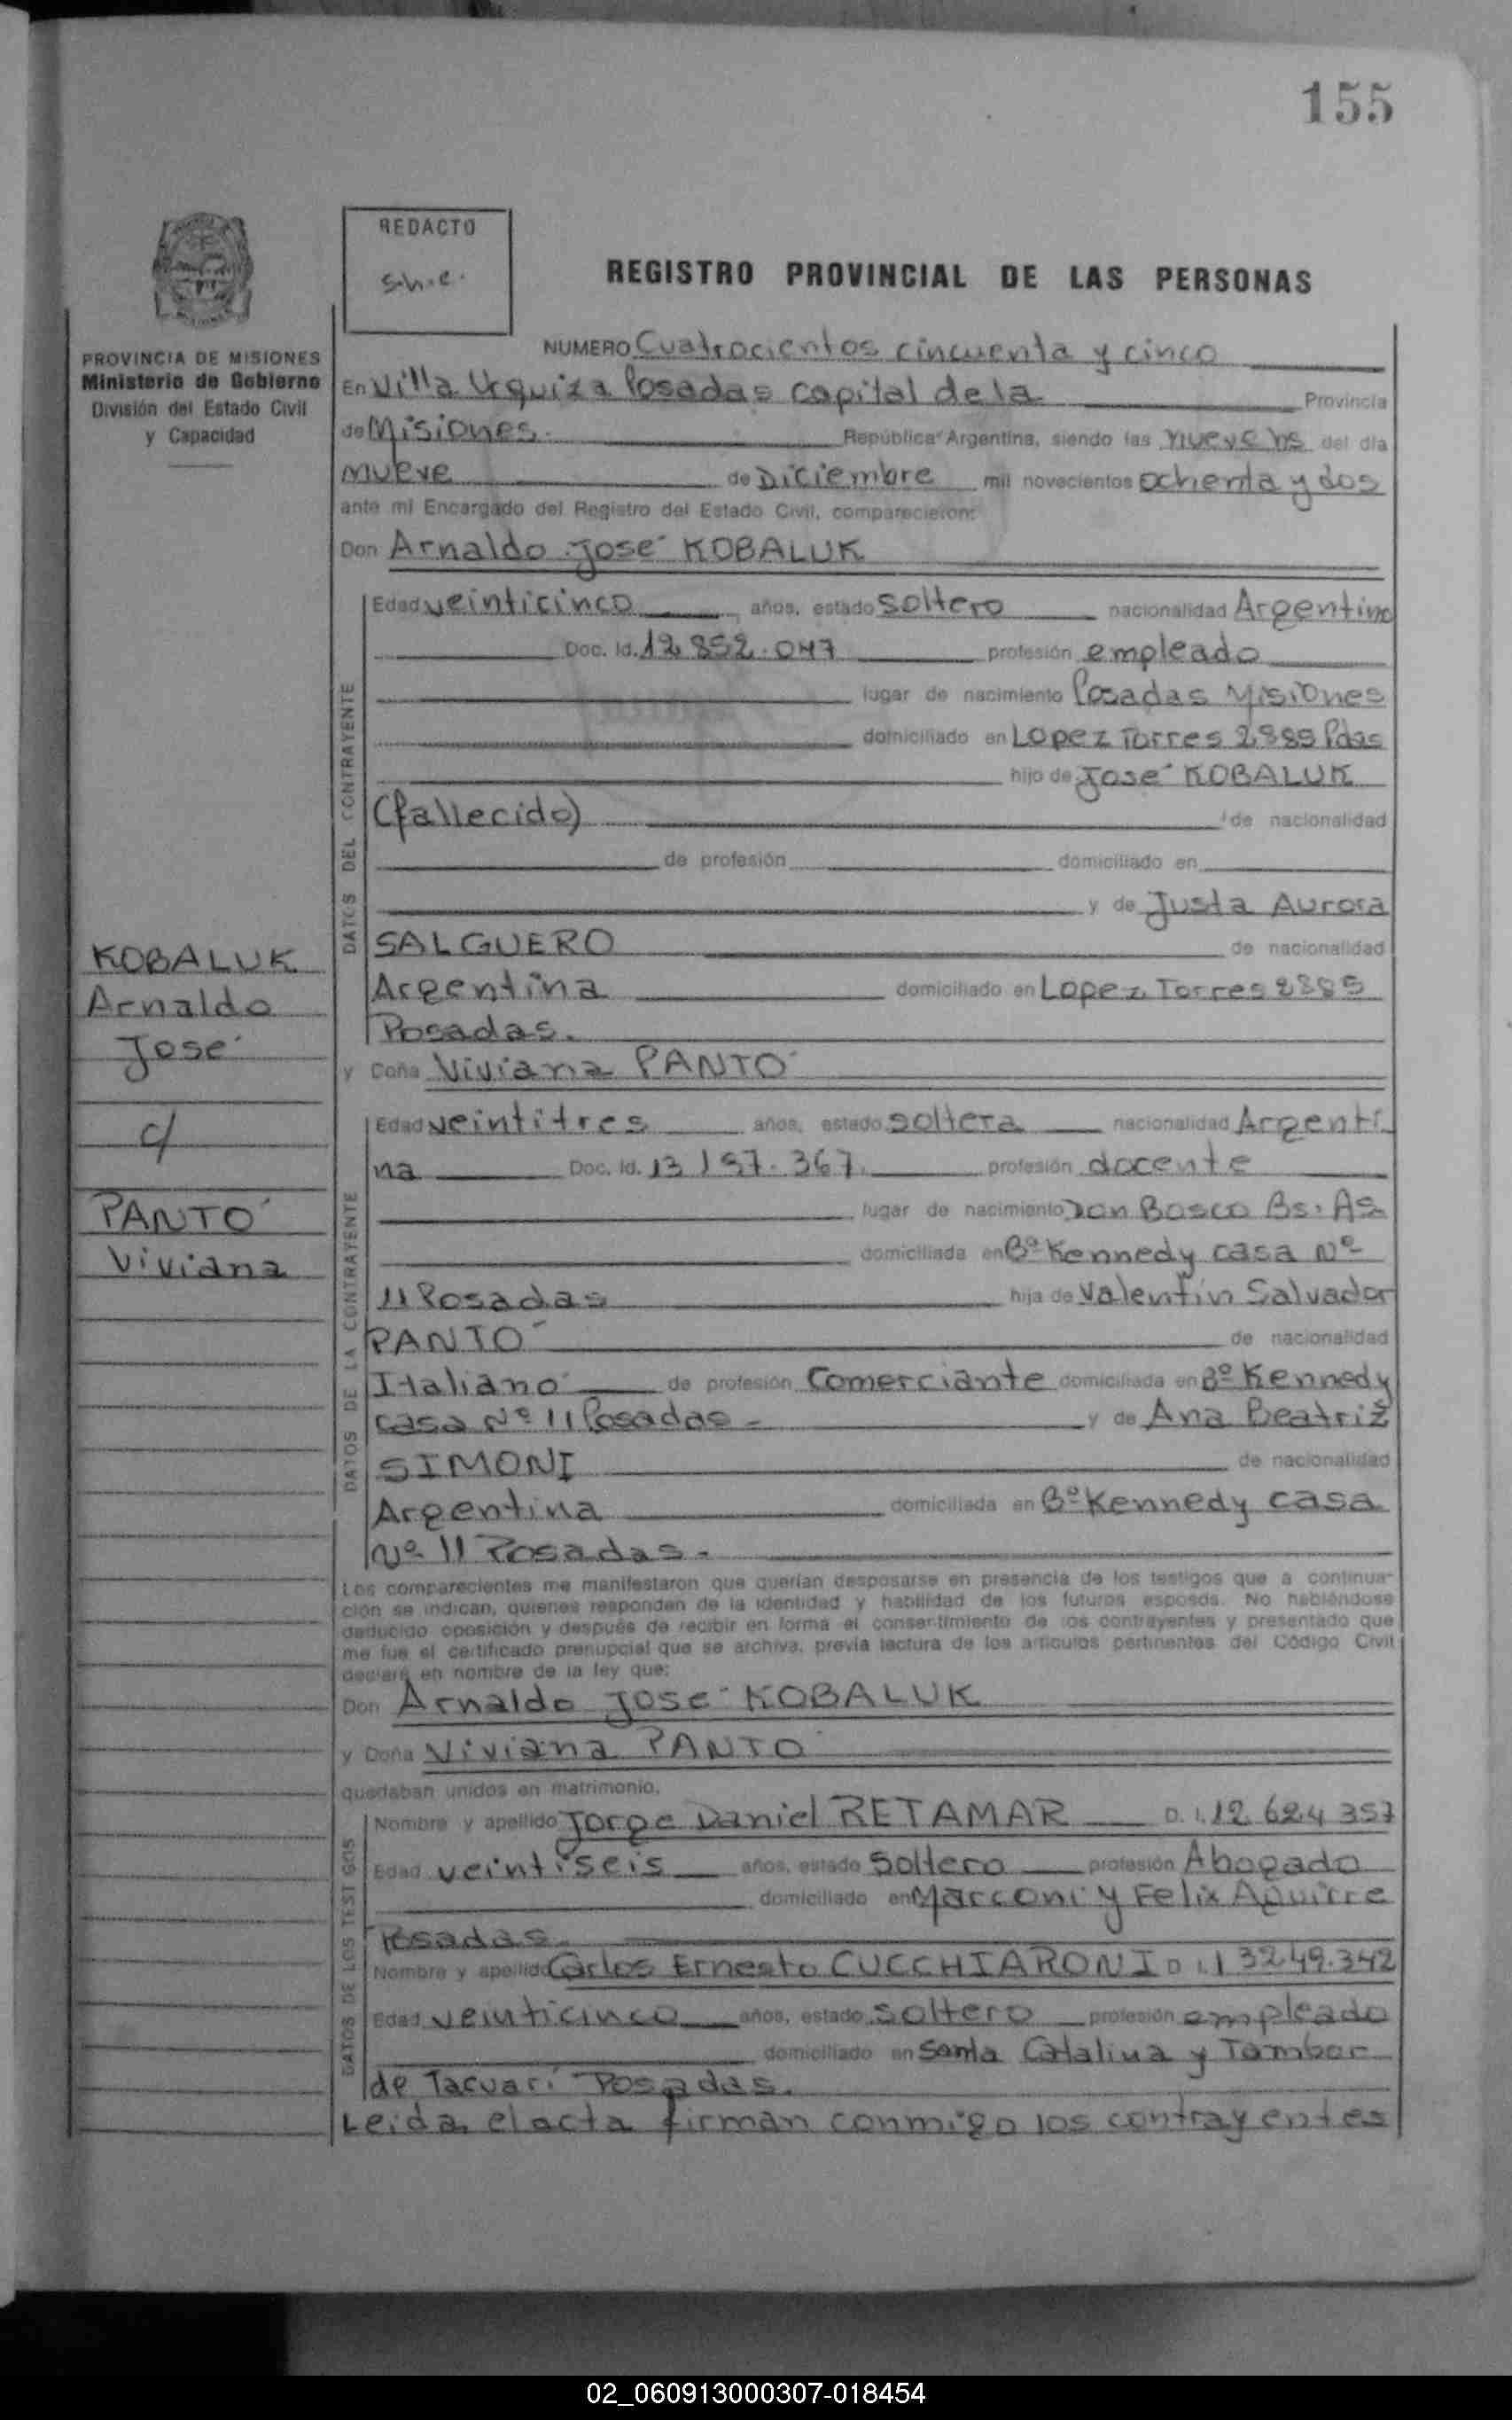 155
REDACTO
S.h.e.
REGISTRO PROVINCIAL DE LAS PERSONAS
PROVINCIA DE MISIONES
Ministerio de Gobierno
División del Estado Civil
y Capacidad
NUMERO Cuatrocientos cincuenta y cinco
En Villa Urquiza Posadas capital de la Provincia
de Misiones. República Argentina, siendo las nueve hs del día
nueve de Diciembre mil novecientos ochenta y dos
ante mi Encargado del Registro del Estado Civil, comparecieron:
Don Arnaldo José KOBALUK
DATOS DEL CONTRAYENTE
Edad veinticinco años, estado soltero nacionalidad Argentino
Doc. Id. 12.852.047 profesión empleado
lugar de nacimiento Posadas Misiones
domiciliado en Lopez Torres 2885 Pdas
hijo de José KOBALUK
(fallecido) de nacionalidad
de profesión domiciliado en
y de Justa Aurora
SALGUERO de nacionalidad
Argentina domiciliado en Lopez Torres 2885
Posadas.
KOBALUK
Arnaldo
José
c/
PANTÓ
Viviana
y Doña Viviana PANTÓ
DATOS DE LA CONTRAYENTE
Edad veintitres años, estado soltera nacionalidad Argenti
na Doc. Id. 13.157.367. profesión docente
lugar de nacimiento Don Bosco Bs. As.
domiciliada en Bº Kennedy casa Nº
11 Posadas hija de Valentín Salvador
PANTÓ de nacionalidad
Italiano de profesión Comerciante domiciliada en Bº Kennedy
casa Nº 11 Posadas - y de Ana Beatriz
SIMONI de nacionalidad
Argentina domiciliada en Bº Kennedy casa
Nº 11 Posadas.
Los comparecientes me manifestaron que querían desposarse en presencia de los testigos que a continua-
ción se indican, quienes responden de la identidad y habilidad de los futuros esposos. No habiéndose
deducido oposición y después de recibir en forma el consentimiento de los contrayentes y presentado que
me fue el certificado prenupcial que se archiva, previa lectura de los artículos pertinentes del Código Civil
declaré en nombre de la ley que:
Don Arnaldo José KOBALUK
y Doña Viviana PANTÓ
quedaban unidos en matrimonio.
DATOS DE LOS TESTIGOS
Nombre y apellido Jorge Daniel RETAMAR D. I. 12.624.357
Edad veintiseis años, estado soltero profesión Abogado
domiciliado en Marconi y Felix Aguirre
Posadas.
Nombre y apellido Carlos Ernesto CUCCHIARONI D. I. 13249.342
Edad veinticinco años, estado soltero profesión empleado
domiciliado en Santa Catalina y Tambor
de Tacuarí Posadas.
Leida el acta firman conmigo los contrayentes
02_060913000307-018454